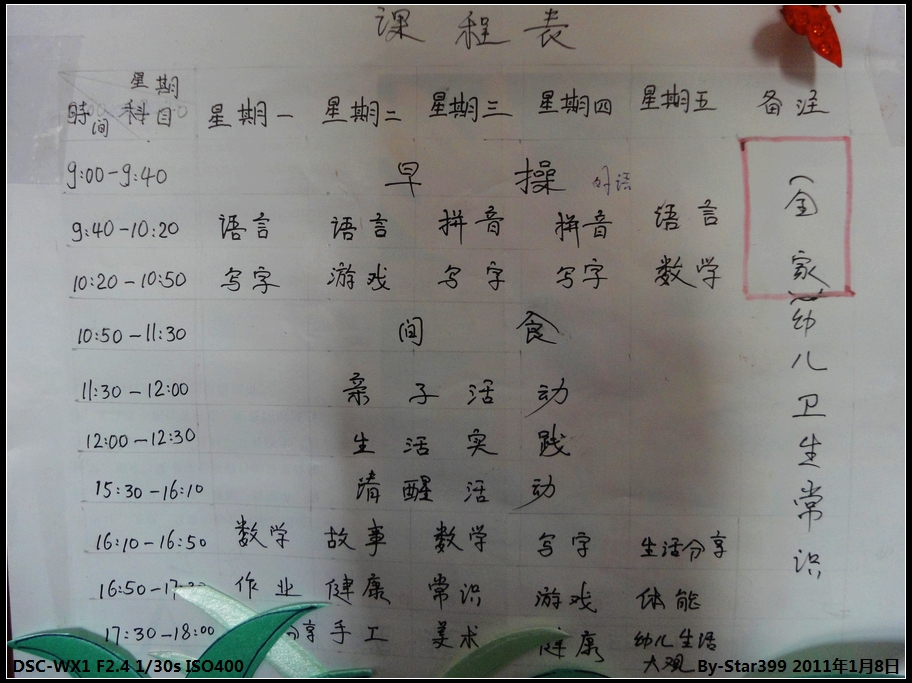 课程表
星期
时间 科目 星期一 星期二 星期三 星期四 星期五 备注
9:00-9:40 早操
9:40-10:20 语言 语言 拼音 拼音 语言
10:20-10:50 写字 游戏 写字 写字 数学
10:50-11:30 间食
11:30-12:00 亲子活动
12:00-12:30 生活实践
15:30-16:10 清醒活动
16:10-16:50 数学 故事 数学 写字 生活分享
16:50-17:30 作业 健康 常识 游戏 体能
17:30-18:00 享 手工 美术 健康 幼儿生活
大观
(全家)幼儿卫生常识
DSC-WX1 F2.4 1/30s ISO400 By-Star399 2011年1月8日